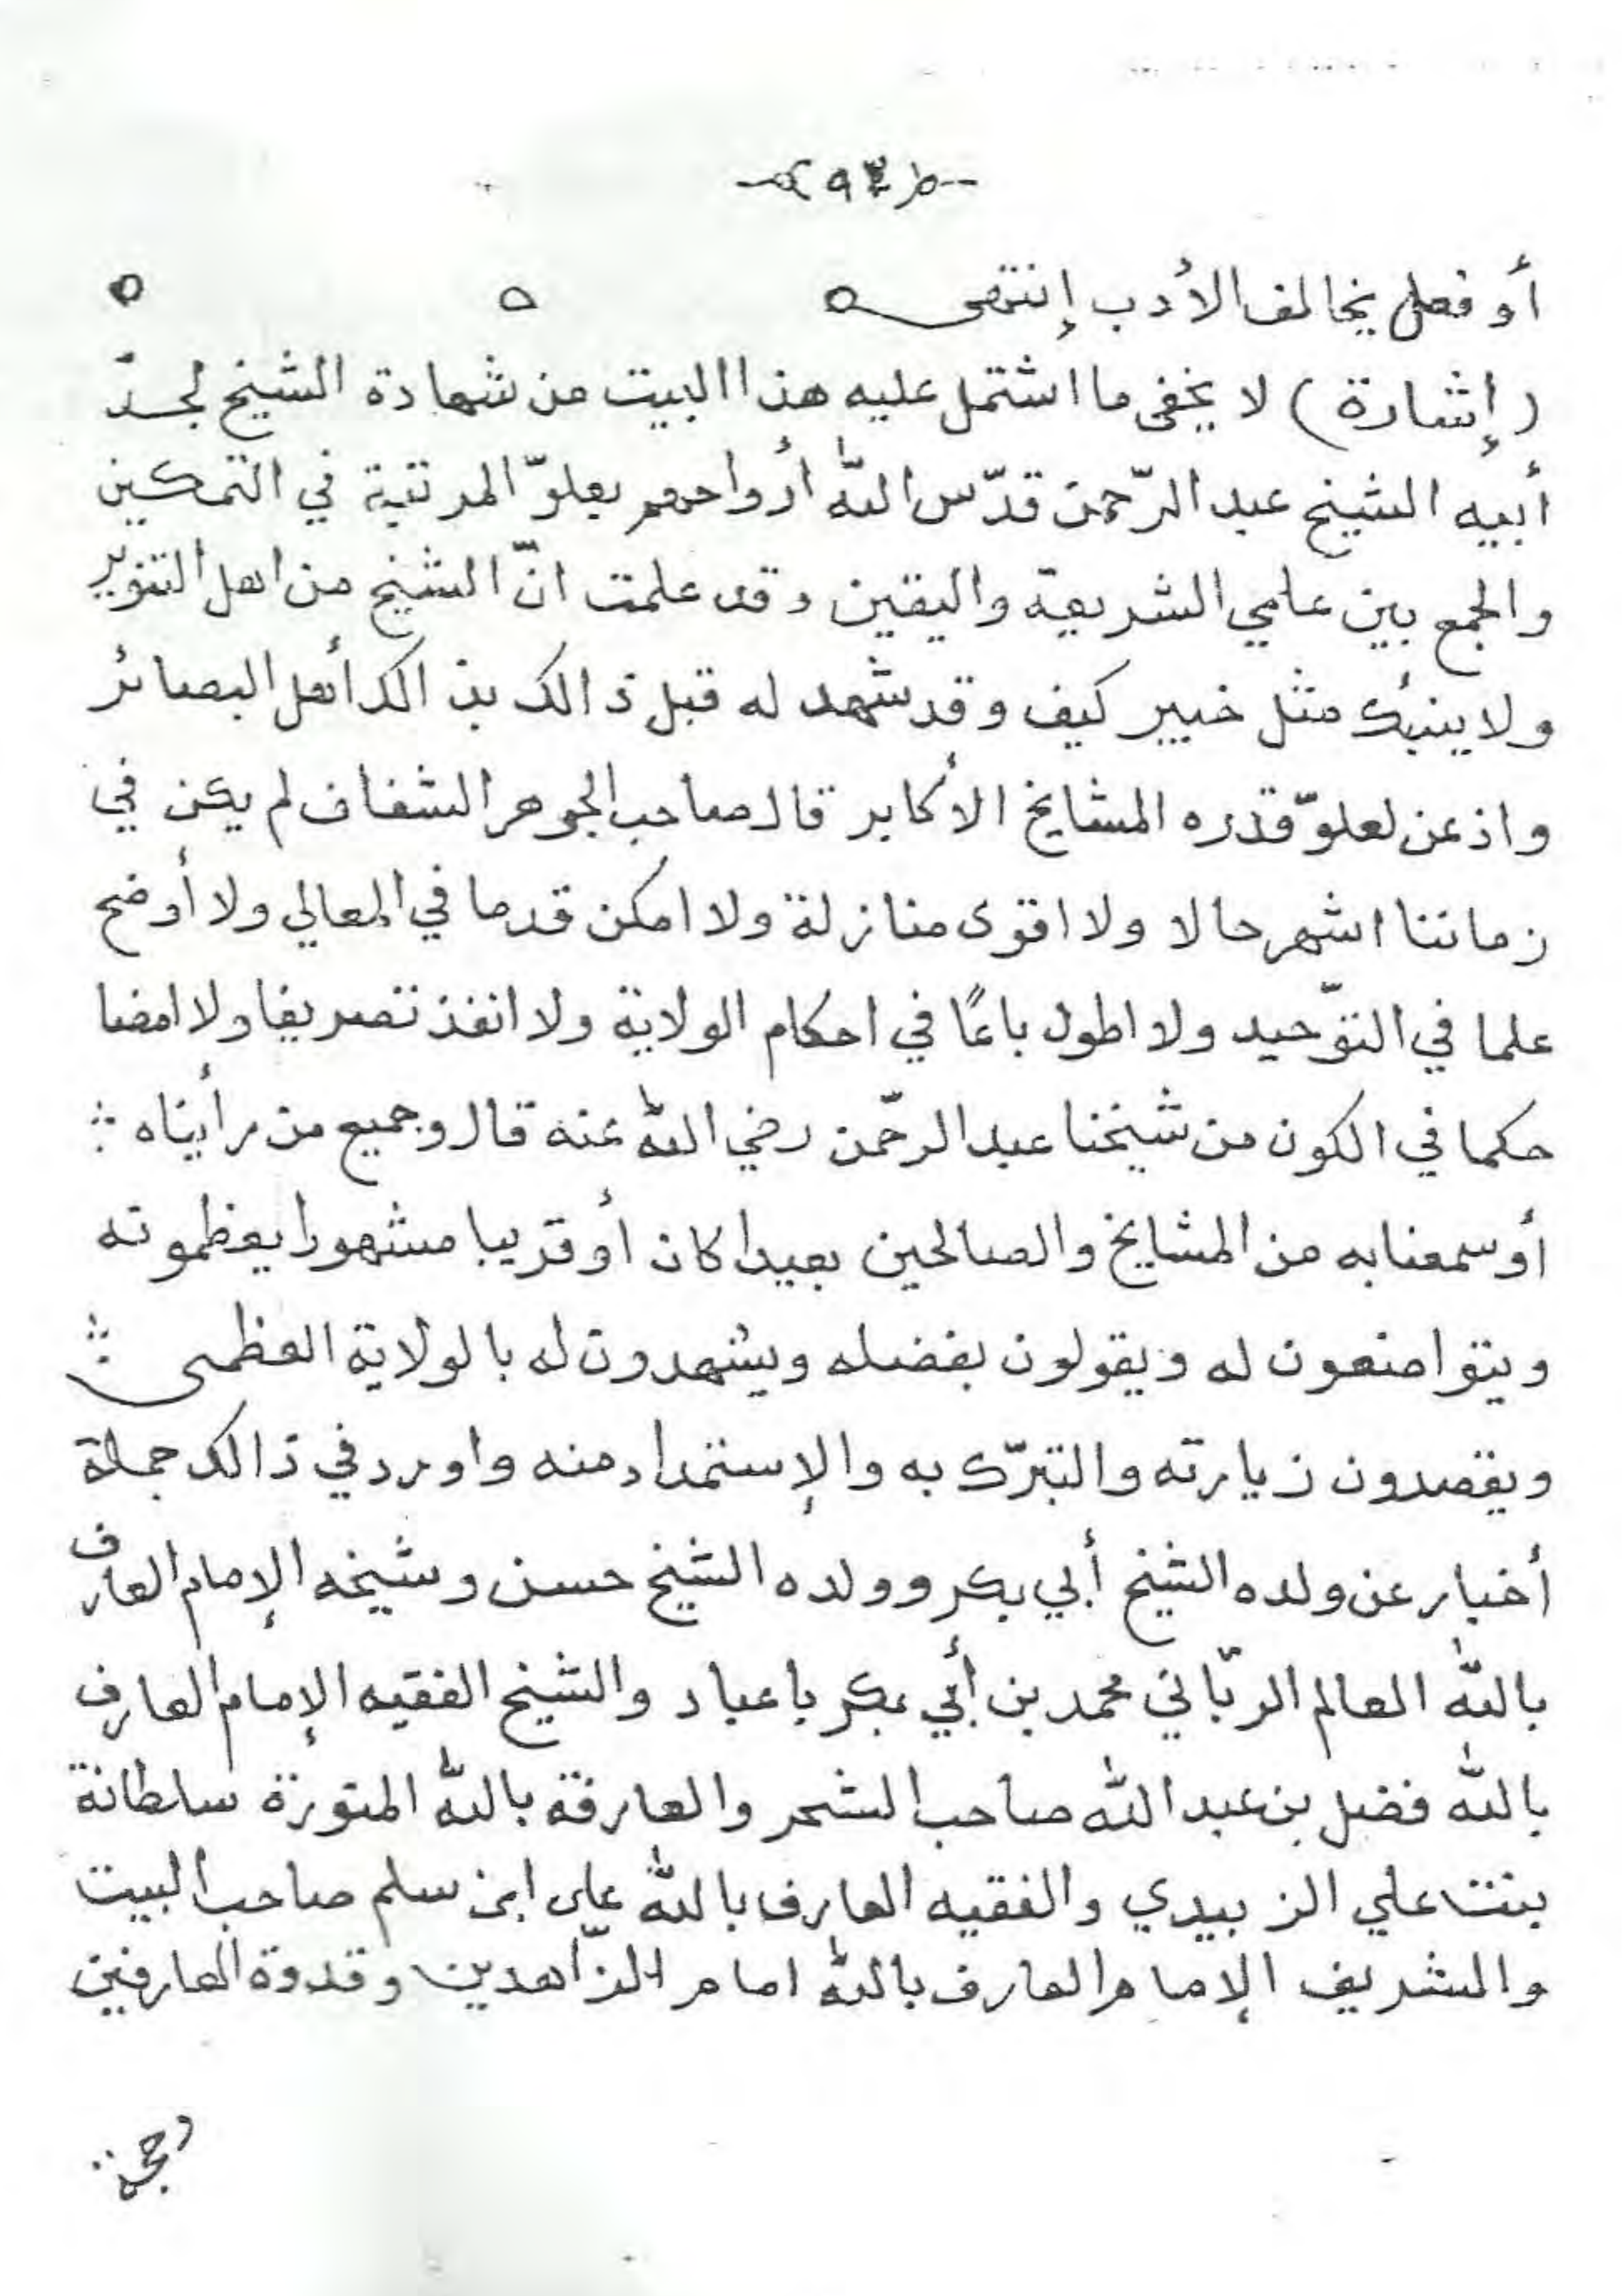 ٩٣
أو فعل يخالف الأدب إنتهى ه ه ه
(إشارة) لا يخفى ما اشتمل عليه هذا البيت من شهادة الشيخ لجدّ
أبيه الشيخ عبد الرّحمن قدّس اللّٰه أرواحهم بعلوّ المرتبة في التمكين
والجمع بين علمي الشريعة واليقين وقد علمت انّ الشيخ من اهل التنوير
ولا ينبئك مثل خبير كيف وقد شهد له قبل ذالك بذالك أهل البصائر
واذعن لعلوّ قدره المشايخ الأكابر قال صاحب الجوهر الشفاف لم يكن في
زماننا اشهر حالا ولا اقوى منازلة ولا امكن قدما في المعالي ولا أوضح
علما في التوّحيد ولا اطول باعًا في احكام الولاية ولا انفذ تصريفا ولا امضا
حكما في الكون من شيخنا عبد الرحّمن رضي اللّٰه عنه قال وجميع من رأيناه ؞
أو سمعنا به من المشايخ والصالحين بعيدا كان أو قريبا مشهورا يعظمونه
ويتواضعون له ويقولون بفضله ويشهدون له بالولاية العظمى ؞
ويقصدون زيارته والتبرّك به والإستمداد منه واورد في ذالك جملة
أخبار عن ولده الشيخ أبي بكر وولده الشيخ حسن وشيخه الإمام العارف
باللّٰه العالم الربّاني محمد بن أبي بكر باعباد والشيخ الفقيه الإمام العارف
باللّٰه فضل بن عبد اللّٰه صاحب الشحر والعارفة باللّٰه المنورة سلطانة
بنت علي الزبيدي والفقيه العارف باللّٰه على ابن سلم صاحب البيت
والشريف الإمام العارف باللّٰه امام الزّاهدين وقدوة العارفين
وحجة